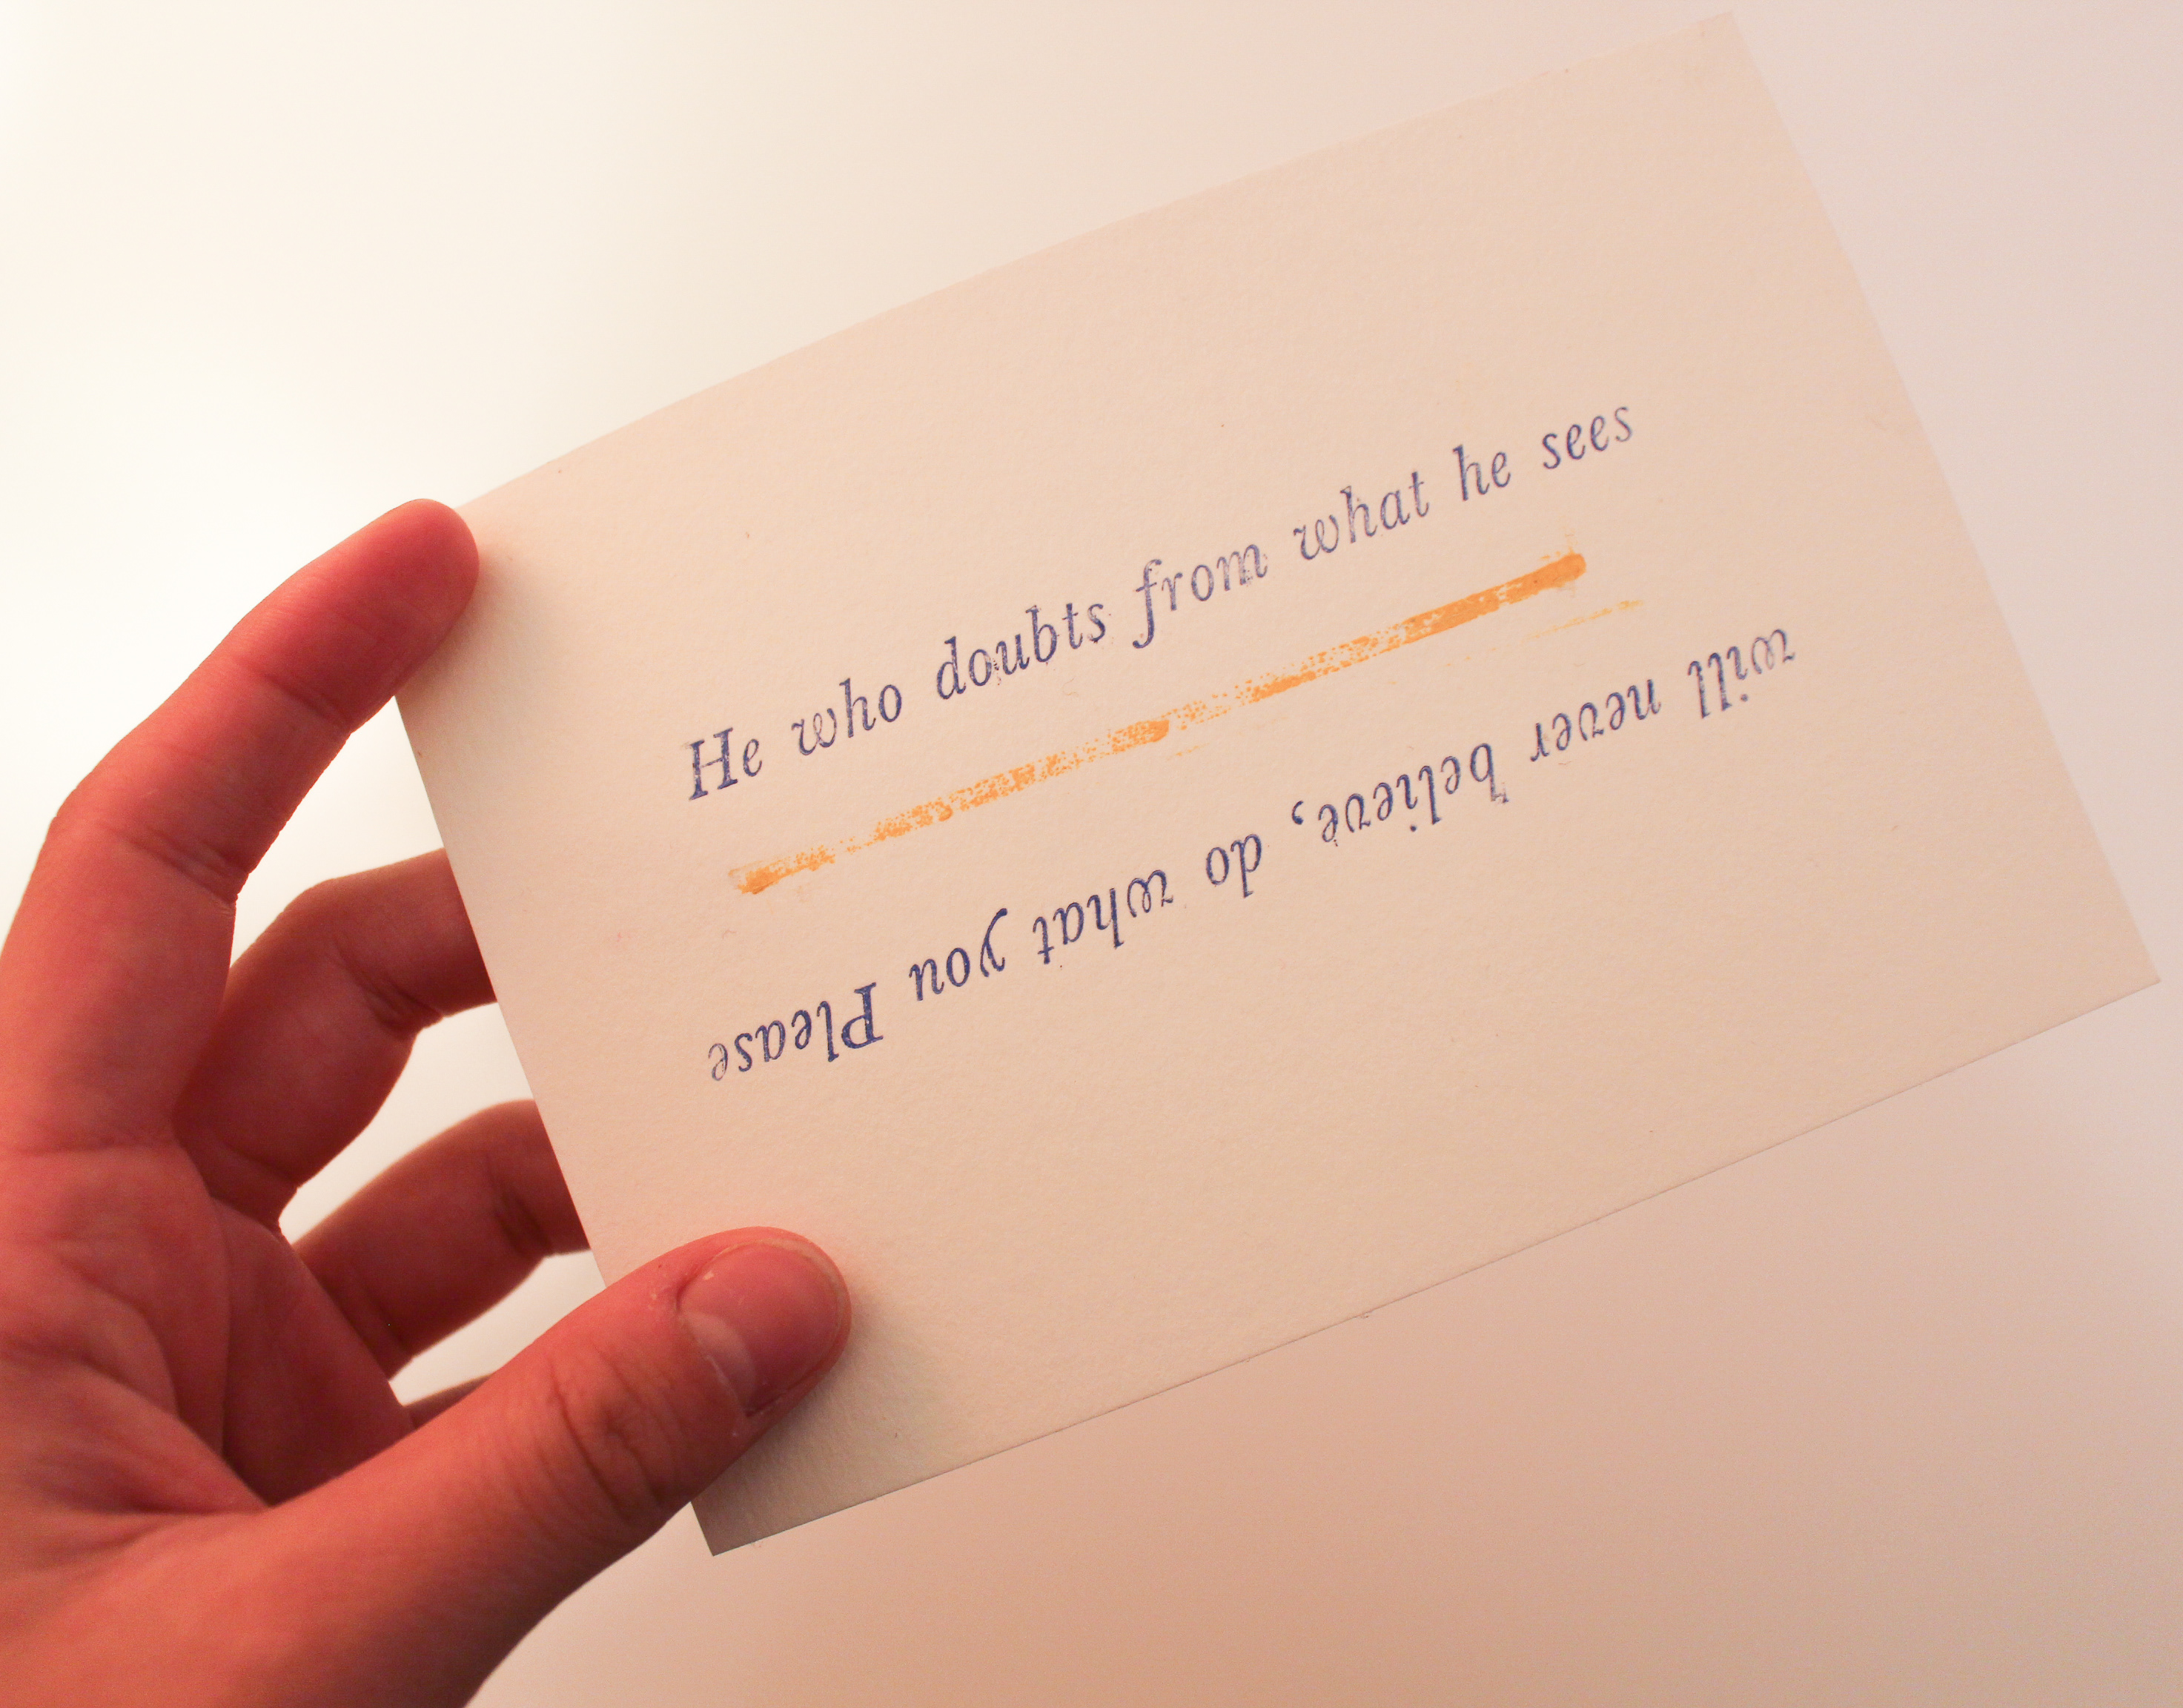 He who doubts from what he sees
will never believe, do what you Please